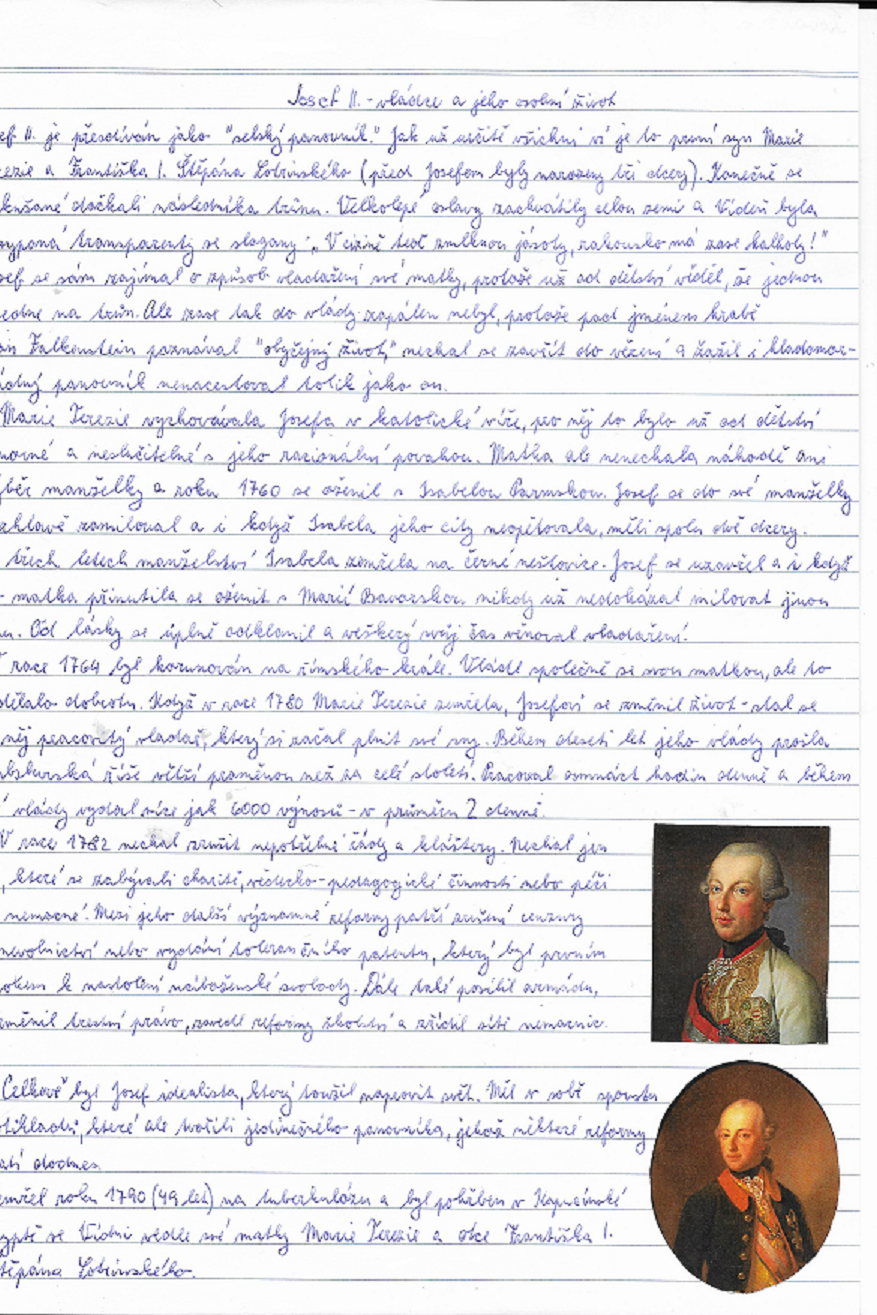 Josef II. - vládce a jeho osobní život
ef II. je přezdíván jako "selský panovník." Jak už určitě všichni ví je to první syn Marie
rezie a Františka I. Štěpána Lotrinského (před Josefem byly narozeny tři dcery). Konečně se
dočkali následníka trůnu. Velkolepé oslavy zachvátily celou zemi a Vídeň byla
transparenty se slogany: „V cizině teď zmlknou jásoty, rakousko má zase kalhoty!"
sef se sám zajímal o způsob vladaření své matky, protože už od dětství věděl, že jednou
sedne na trůn. Ale zase tak do vlády zapálen nebyl, protože pod jménem hrabě
on Falkenstein poznával "obyčejný život," nechal se zavřít do vězení a zažil i hladomor-
ádný panovník nenacestoval tolik jako on.
Marie Terezie vychovávala Josefa v katolické víře, pro něj to bylo už od dětství
a neslučitelné s jeho racionální povahou. Matka ale nenechala náhodě ani
ýběr manželky a roku 1760 se oženil s Isabelou Parmskou. Josef se do své manželky
ezhlavě zamiloval a i když Isabela jeho city neopětovala, měli spolu dvě dcery.
třech letech manželství Isabela zemřela na černé neštovice. Josef se uzavřel a i když
matka přinutila se oženit s Marií Bavorskou nikdy už nedokázal milovat jinou
nu. Od lásky se úplně odklonil a veškerý svůj čas věnoval vladaření.
V roce 1764 byl korunován na římského krále. Vládl společně se svou matkou, ale to
dělalo dobrotu. Když v roce 1780 Marie Terezie zemřela, Josefovi se změnil život - stal se
něj pracovitý vladař, který si začal plnit své sny. Během deseti let jeho vlády prošla
absburská říše větší proměnou než za celé století. Pracoval osmnáct hodin denně a během
vlády vydal více jak 6000 výnosů - v průměru 2 denně.
V roce 1782 nechal zrušit nepotřebné řády a kláštery. Nechal jen
, které se zabývali charitě, vědecko-pedagogické činnosti nebo péči
nemocné. Mezi jeho další významné reformy patří zrušení cenzury
nevolnictví nebo vydání tolerančního patentu, který byl prvním
okem k nastolení náboženské svobody. Dále také posílil armádu,
změnil trestní právo, zavedl reformy školství a zřídil síť nemocnic.
Celkově byl Josef idealista, který toužil napravit svět. Měl v sobě spoustu
otikladů, které ale tvořili jedinečného panovníka, jehož některé reformy
atí dodnes
emřel roku 1790 (49 let) na tuberkulózu a byl pohřben v Kapucínské
yptě ve Vídni vedle své matky Marie Terezie a otce Františka I.
těpána Lotrinského.